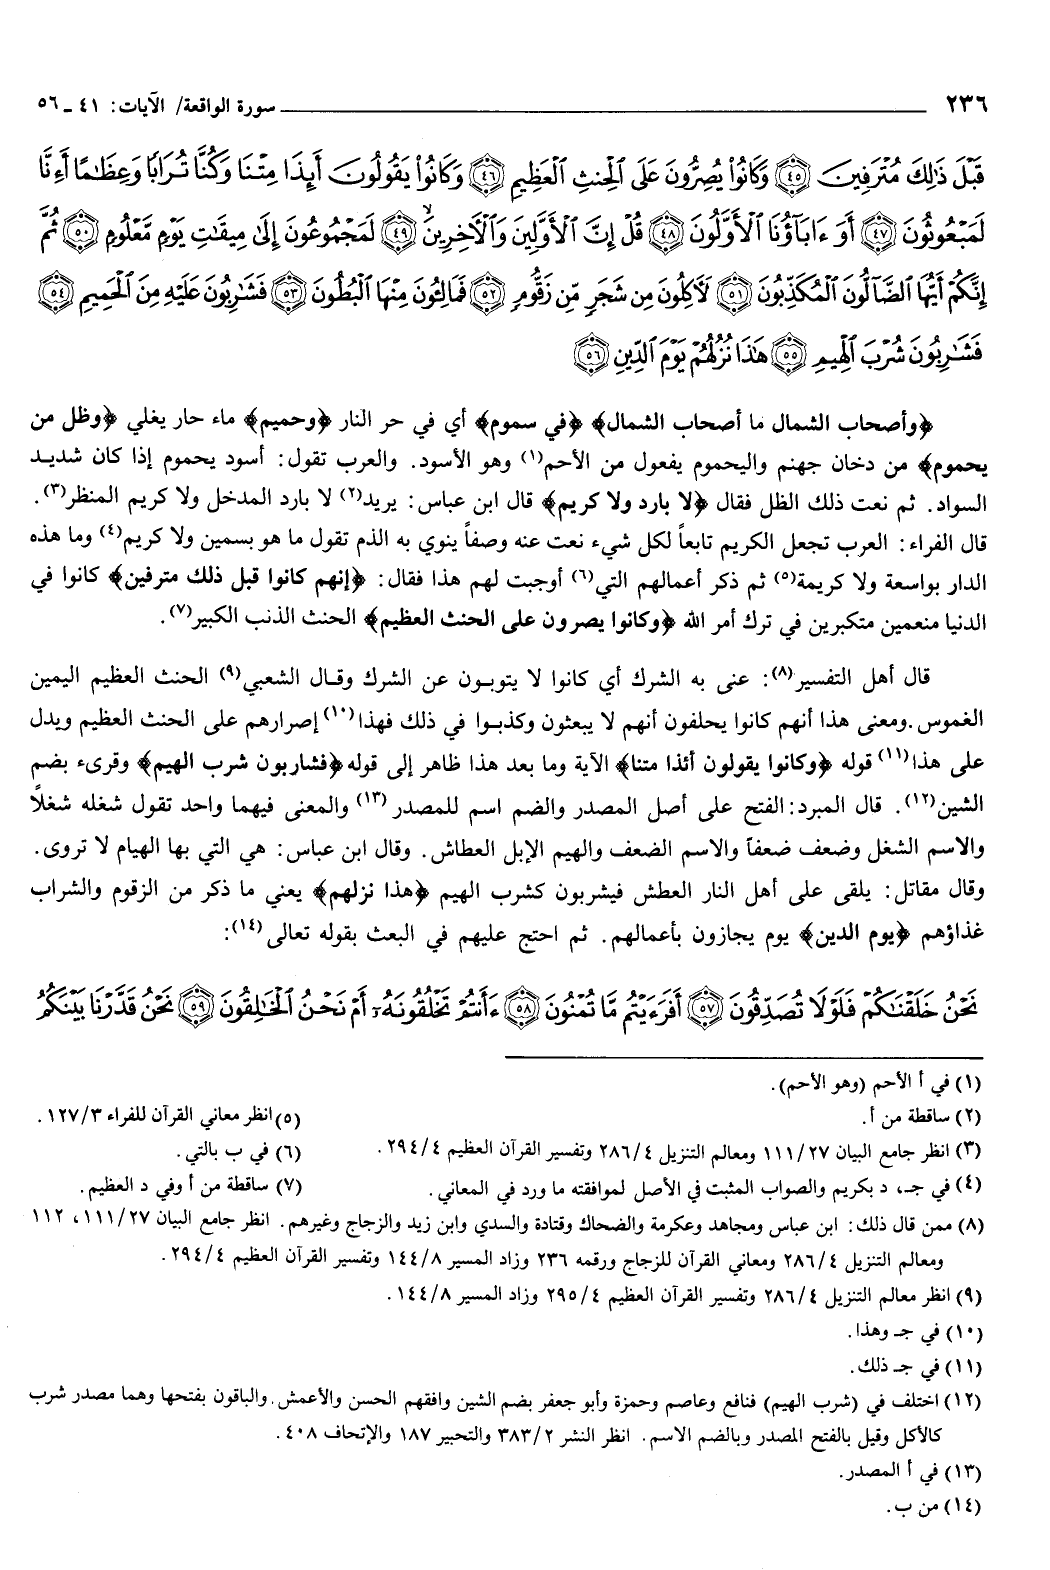 ٢٣٦ سورة الواقعة/ الآيات: ٤١ ـ ٥٦
قَبْلَ ذَٰلِكَ مُتْرَفِينَ ﴿٤٥﴾ وَكَانُوا۟ يُصِرُّونَ عَلَى ٱلْحِنثِ ٱلْعَظِيمِ ﴿٤٦﴾ وَكَانُوا۟ يَقُولُونَ أَئِذَا مِتْنَا وَكُنَّا تُرَابًا وَعِظَٰمًا أَءِنَّا
لَمَبْعُوثُونَ ﴿٤٧﴾ أَوَ ءَابَآؤُنَا ٱلْأَوَّلُونَ ﴿٤٨﴾ قُلْ إِنَّ ٱلْأَوَّلِينَ وَٱلْأٓخِرِينَ ﴿٤٩﴾ لَمَجْمُوعُونَ إِلَىٰ مِيقَٰتِ يَوْمٍ مَّعْلُومٍ ﴿٥٠﴾ ثُمَّ
إِنَّكُمْ أَيُّهَا ٱلضَّآلُّونَ ٱلْمُكَذِّبُونَ ﴿٥١﴾ لَأٓكِلُونَ مِن شَجَرٍ مِّن زَقُّومٍ ﴿٥٢﴾ فَمَالِـُٔونَ مِنْهَا ٱلْبُطُونَ ﴿٥٣﴾ فَشَٰرِبُونَ عَلَيْهِ مِنَ ٱلْحَمِيمِ ﴿٥٤﴾
فَشَٰرِبُونَ شُرْبَ ٱلْهِيمِ ﴿٥٥﴾ هَٰذَا نُزُلُهُمْ يَوْمَ ٱلدِّينِ ﴿٥٦﴾
﴿وأصحاب الشمال ما أصحاب الشمال﴾ ﴿في سموم﴾ أي في حر النار ﴿وحميم﴾ ماء حار يغلي ﴿وظل من
يحموم﴾ من دخان جهنم واليحموم يفعول من الأحم(١) وهو الأسود. والعرب تقول: أسود يحموم إذا كان شديد
السواد. ثم نعت ذلك الظل فقال ﴿لا بارد ولا كريم﴾ قال ابن عباس: يريد(٢) لا بارد المدخل ولا كريم المنظر(٣).
قال الفراء: العرب تجعل الكريم تابعاً لكل شيء نعت عنه وصفاً ينوي به الذم تقول ما هو بسمين ولا كريم(٤) وما هذه
الدار بواسعة ولا كريمة(٥) ثم ذكر أعمالهم التي(٦) أوجبت لهم هذا فقال: ﴿إنهم كانوا قبل ذلك مترفين﴾ كانوا في
الدنيا منعمين متكبرين في ترك أمر الله ﴿وكانوا يصرون على الحنث العظيم﴾ الحنث الذنب الكبير(٧).
قال أهل التفسير(٨): عنى به الشرك أي كانوا لا يتوبون عن الشرك وقال الشعبي(٩) الحنث العظيم اليمين
الغموس.ومعنى هذا أنهم كانوا يحلفون أنهم لا يبعثون وكذبوا في ذلك فهذا(١٠) إصرارهم على الحنث العظيم ويدل
على هذا(١١) قوله ﴿وكانوا يقولون أئذا متنا﴾ الآية وما بعد هذا ظاهر إلى قوله ﴿فشاربون شرب الهيم﴾ وقرىء بضم
الشين(١٢). قال المبرد: الفتح على أصل المصدر والضم اسم للمصدر(١٣) والمعنى فيهما واحد تقول شغله شغلاً
والاسم الشغل وضعف ضعفاً والاسم الضعف والهيم الإبل العطاش. وقال ابن عباس: هي التي بها الهيام لا تروى.
وقال مقاتل: يلقى على أهل النار العطش فيشربون كشرب الهيم ﴿هذا نزلهم﴾ يعني ما ذكر من الزقوم والشراب
غذاؤهم ﴿يوم الدين﴾ يوم يجازون بأعمالهم. ثم احتج عليهم في البعث بقوله تعالى(١٤):
نَحْنُ خَلَقْنَٰكُمْ فَلَوْلَا تُصَدِّقُونَ ﴿٥٧﴾ أَفَرَءَيْتُم مَّا تُمْنُونَ ﴿٥٨﴾ ءَأَنتُمْ تَخْلُقُونَهُۥٓ أَمْ نَحْنُ ٱلْخَٰلِقُونَ ﴿٥٩﴾ نَحْنُ قَدَّرْنَا بَيْنَكُمُ
(١) في أ الأحم (وهو الأحم).
(٢) ساقطة من أ. (٥) انظر معاني القرآن للفراء ١٢٧/٣.
(٣) انظر جامع البيان ١١١/٢٧ ومعالم التنزيل ٢٨٦/٤ وتفسير القرآن العظيم ٢٩٤/٤. (٦) في ب بالتي.
(٤) في جـ، د بكريم والصواب المثبت في الأصل لموافقته ما ورد في المعاني. (٧) ساقطة من أ وفي د العظيم.
(٨) ممن قال ذلك: ابن عباس ومجاهد وعكرمة والضحاك وقتادة والسدي وابن زيد والزجاج وغيرهم. انظر جامع البيان ١١١/٢٧، ١١٢
ومعالم التنزيل ٢٨٦/٤ ومعاني القرآن للزجاج ورقمه ٢٣٦ وزاد المسير ١٤٤/٨ وتفسير القرآن العظيم ٢٩٤/٤.
(٩) انظر معالم التنزيل ٢٨٦/٤ وتفسير القرآن العظيم ٢٩٥/٤ وزاد المسير ١٤٤/٨.
(١٠) في جـ وهذا.
(١١) في جـ ذلك.
(١٢) اختلف في (شرب الهيم) فنافع وعاصم وحمزة وأبو جعفر بضم الشين وافقهم الحسن والأعمش. والباقون بفتحها وهما مصدر شرب
كالأكل وقيل بالفتح المصدر وبالضم الاسم. انظر النشر ٣٨٣/٢ والتحبير ١٨٧ والإتحاف ٤٠٨.
(١٣) في أ المصدر.
(١٤) من ب.